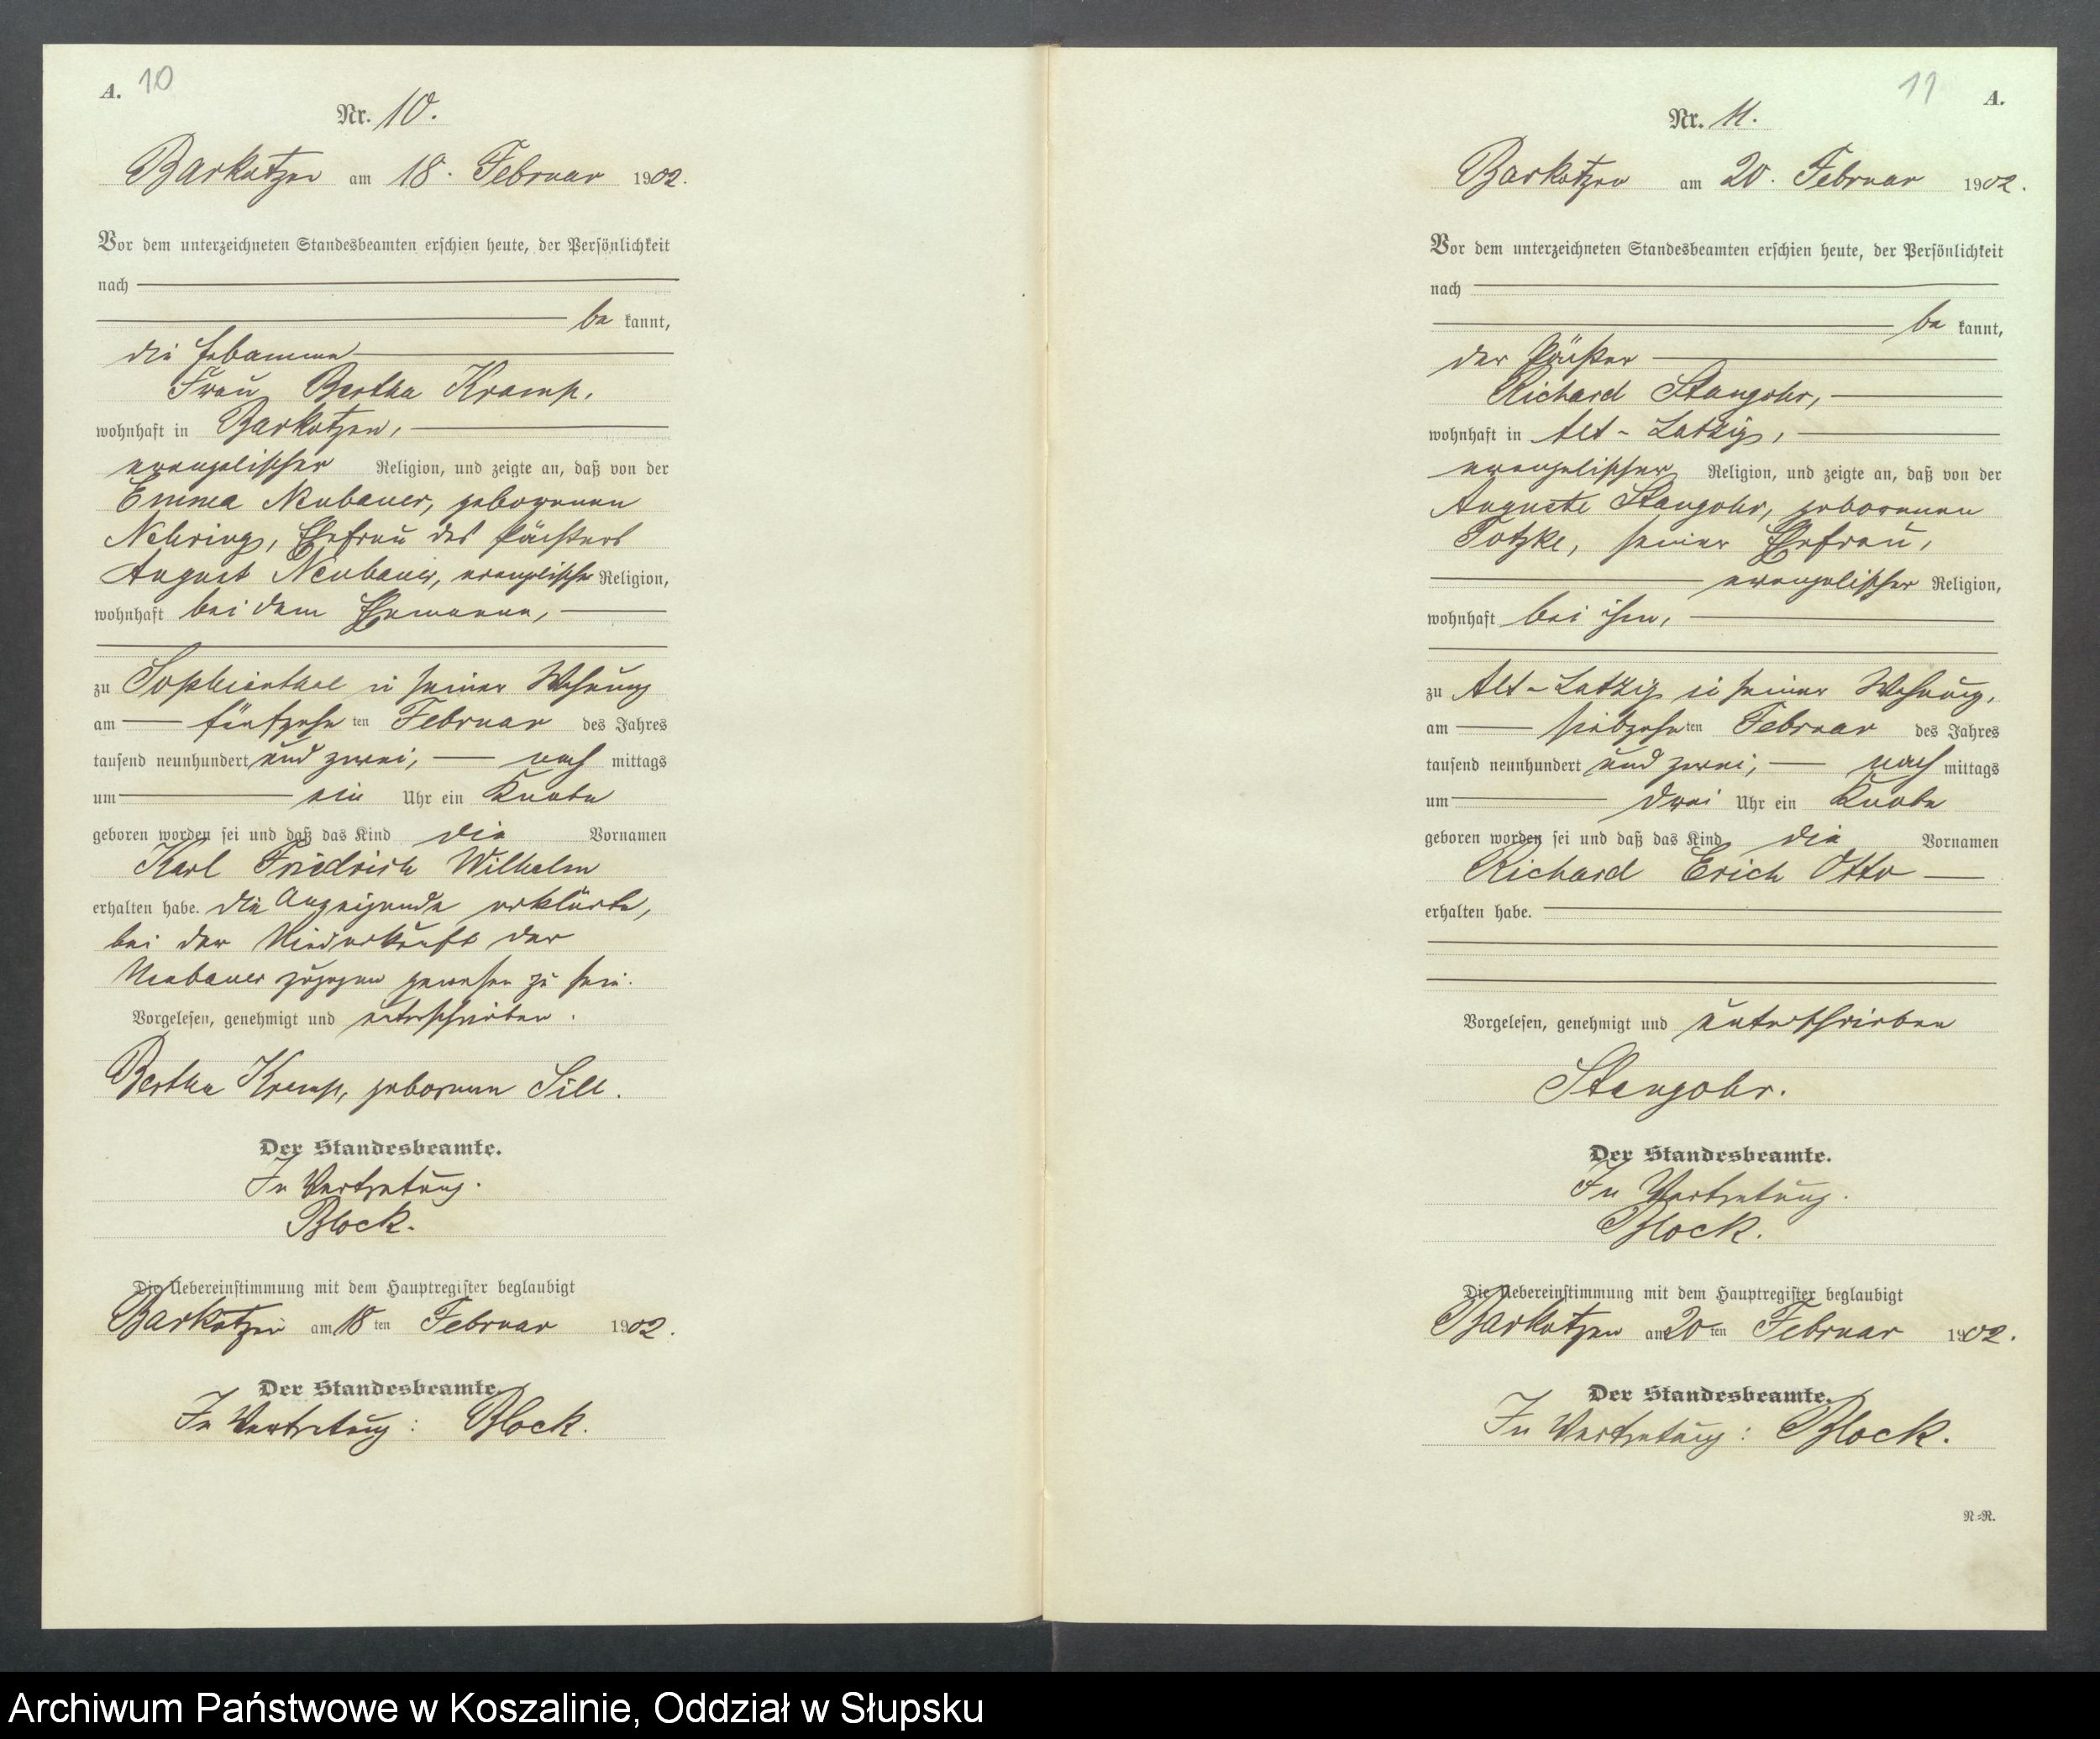 A. 10
Nr. 10.
Barkotzen am 18. Februar 1902.
Vor dem unterzeichneten Standesbeamten erschien heute, der Persönlichkeit
nach
be kannt,
die Hebamme
Frau Bertha Kramp,
wohnhaft in Barkotzen,
evangelischer Religion, und zeigte an, daß von der
Emma Neubauer, geborenen
Nehring, Ehefrau des Pächters
August Neubauer, evangelischer Religion,
wohnhaft bei dem Ehemanne,
zu Sophienthal in seiner Wohnung
am fünfzehn ten Februar des Jahres
tausend neunhundert und zwei, nach mittags
um ein Uhr ein Knabe
geboren worden sei und daß das Kind die Vornamen
Karl Friedrich Wilhelm
erhalten habe. Die Anzeigende erklärte,
bei der Niederkunft der
Neubauer zugegen gewesen zu sein.
Vorgelesen, genehmigt und unterschrieben.
Bertha Kramp, geborenen Sill.
Der Standesbeamte.
In Vertretung.
Block.
Die Uebereinstimmung mit dem Hauptregister beglaubigt
Barkotzen am 18 ten Februar 1902.
Der Standesbeamte.
In Vertretung: Block.
11 A.
Nr. 11.
Barkotzen am 20. Februar 1902.
Vor dem unterzeichneten Standesbeamten erschien heute, der Persönlichkeit
nach
be kannt,
der Pächter
Richard Stangohr,
wohnhaft in Alt-Latzig,
evangelischer Religion, und zeigte an, daß von der
Auguste Stangohr, geborenen
Totzke, seiner Ehefrau,
evangelischer Religion,
wohnhaft bei ihm,
zu Alt-Latzig in seiner Wohnung,
am siebzehn ten Februar des Jahres
tausend neunhundert und zwei, nach mittags
um drei Uhr ein Knabe
geboren worden sei und daß das Kind die Vornamen
Richard Erich Otto
erhalten habe.
Vorgelesen, genehmigt und unterschrieben
Stangohr.
Der Standesbeamte.
In Vertretung.
Block.
Die Uebereinstimmung mit dem Hauptregister beglaubigt
Barkotzen am 20 ten Februar 1902.
Der Standesbeamte.
In Vertretung: Block.
N-R.
Archiwum Państwowe w Koszalinie, Oddział w Słupsku